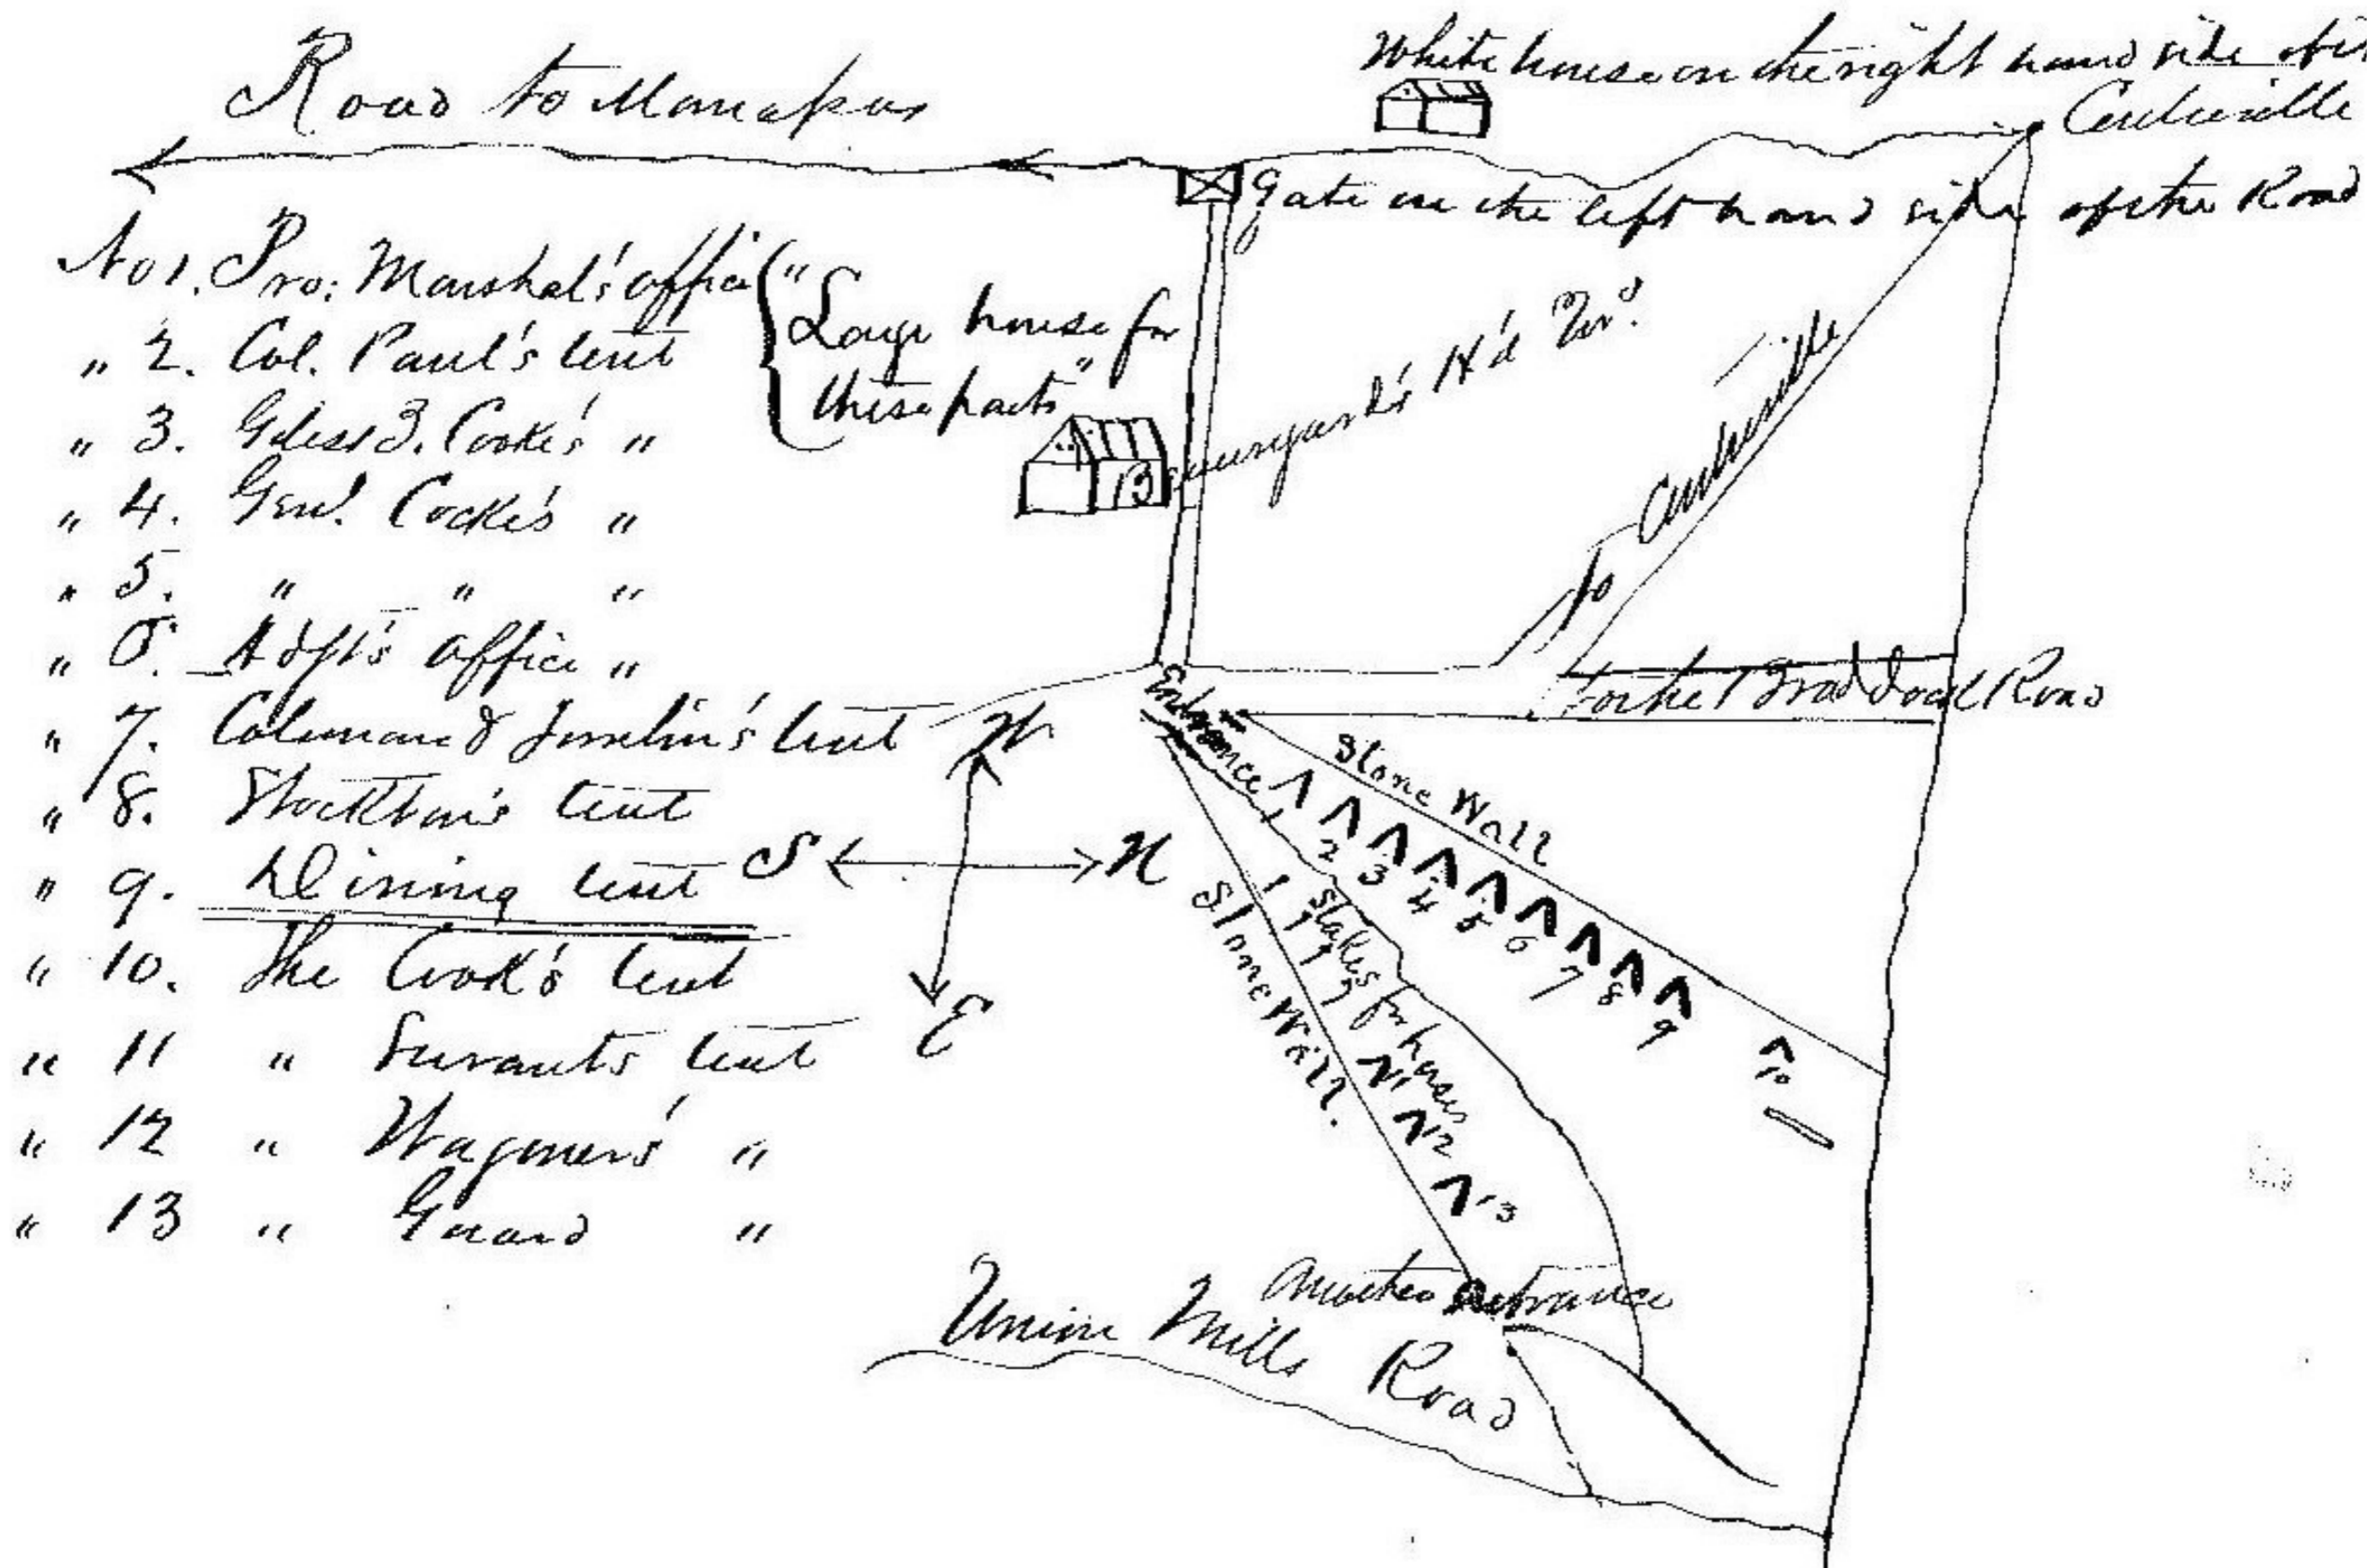 White house on the right hand side of
Road to Manassas
Centreville
Gate on the left hand side of the Road
No 1. Pro: Marshal's office
" 2. Col. Paul's tent
" 3. Giles B. Cooke's "
" 4. Genl. Cocke's "
" 5. " " "
" 6. Adjt's office "
" 7. Coleman & Tomlin's tent
" 8. Stockton's tent
" 9. Dining tent
" 10. The Cook's tent
" 11 " Servants tent
" 12 " Wagoners' "
" 13 " Guard "
"Large house for
these parts"
Beauregard's H'd Qrs.
To Centreville
Braddock Road
Entrance
Stone Wall
1 2 3 4 5 6 7 8 9 10
Stakes for horses
Stone Wall.
11
12
13
W
S N
E
Another entrance
Union Mills Road